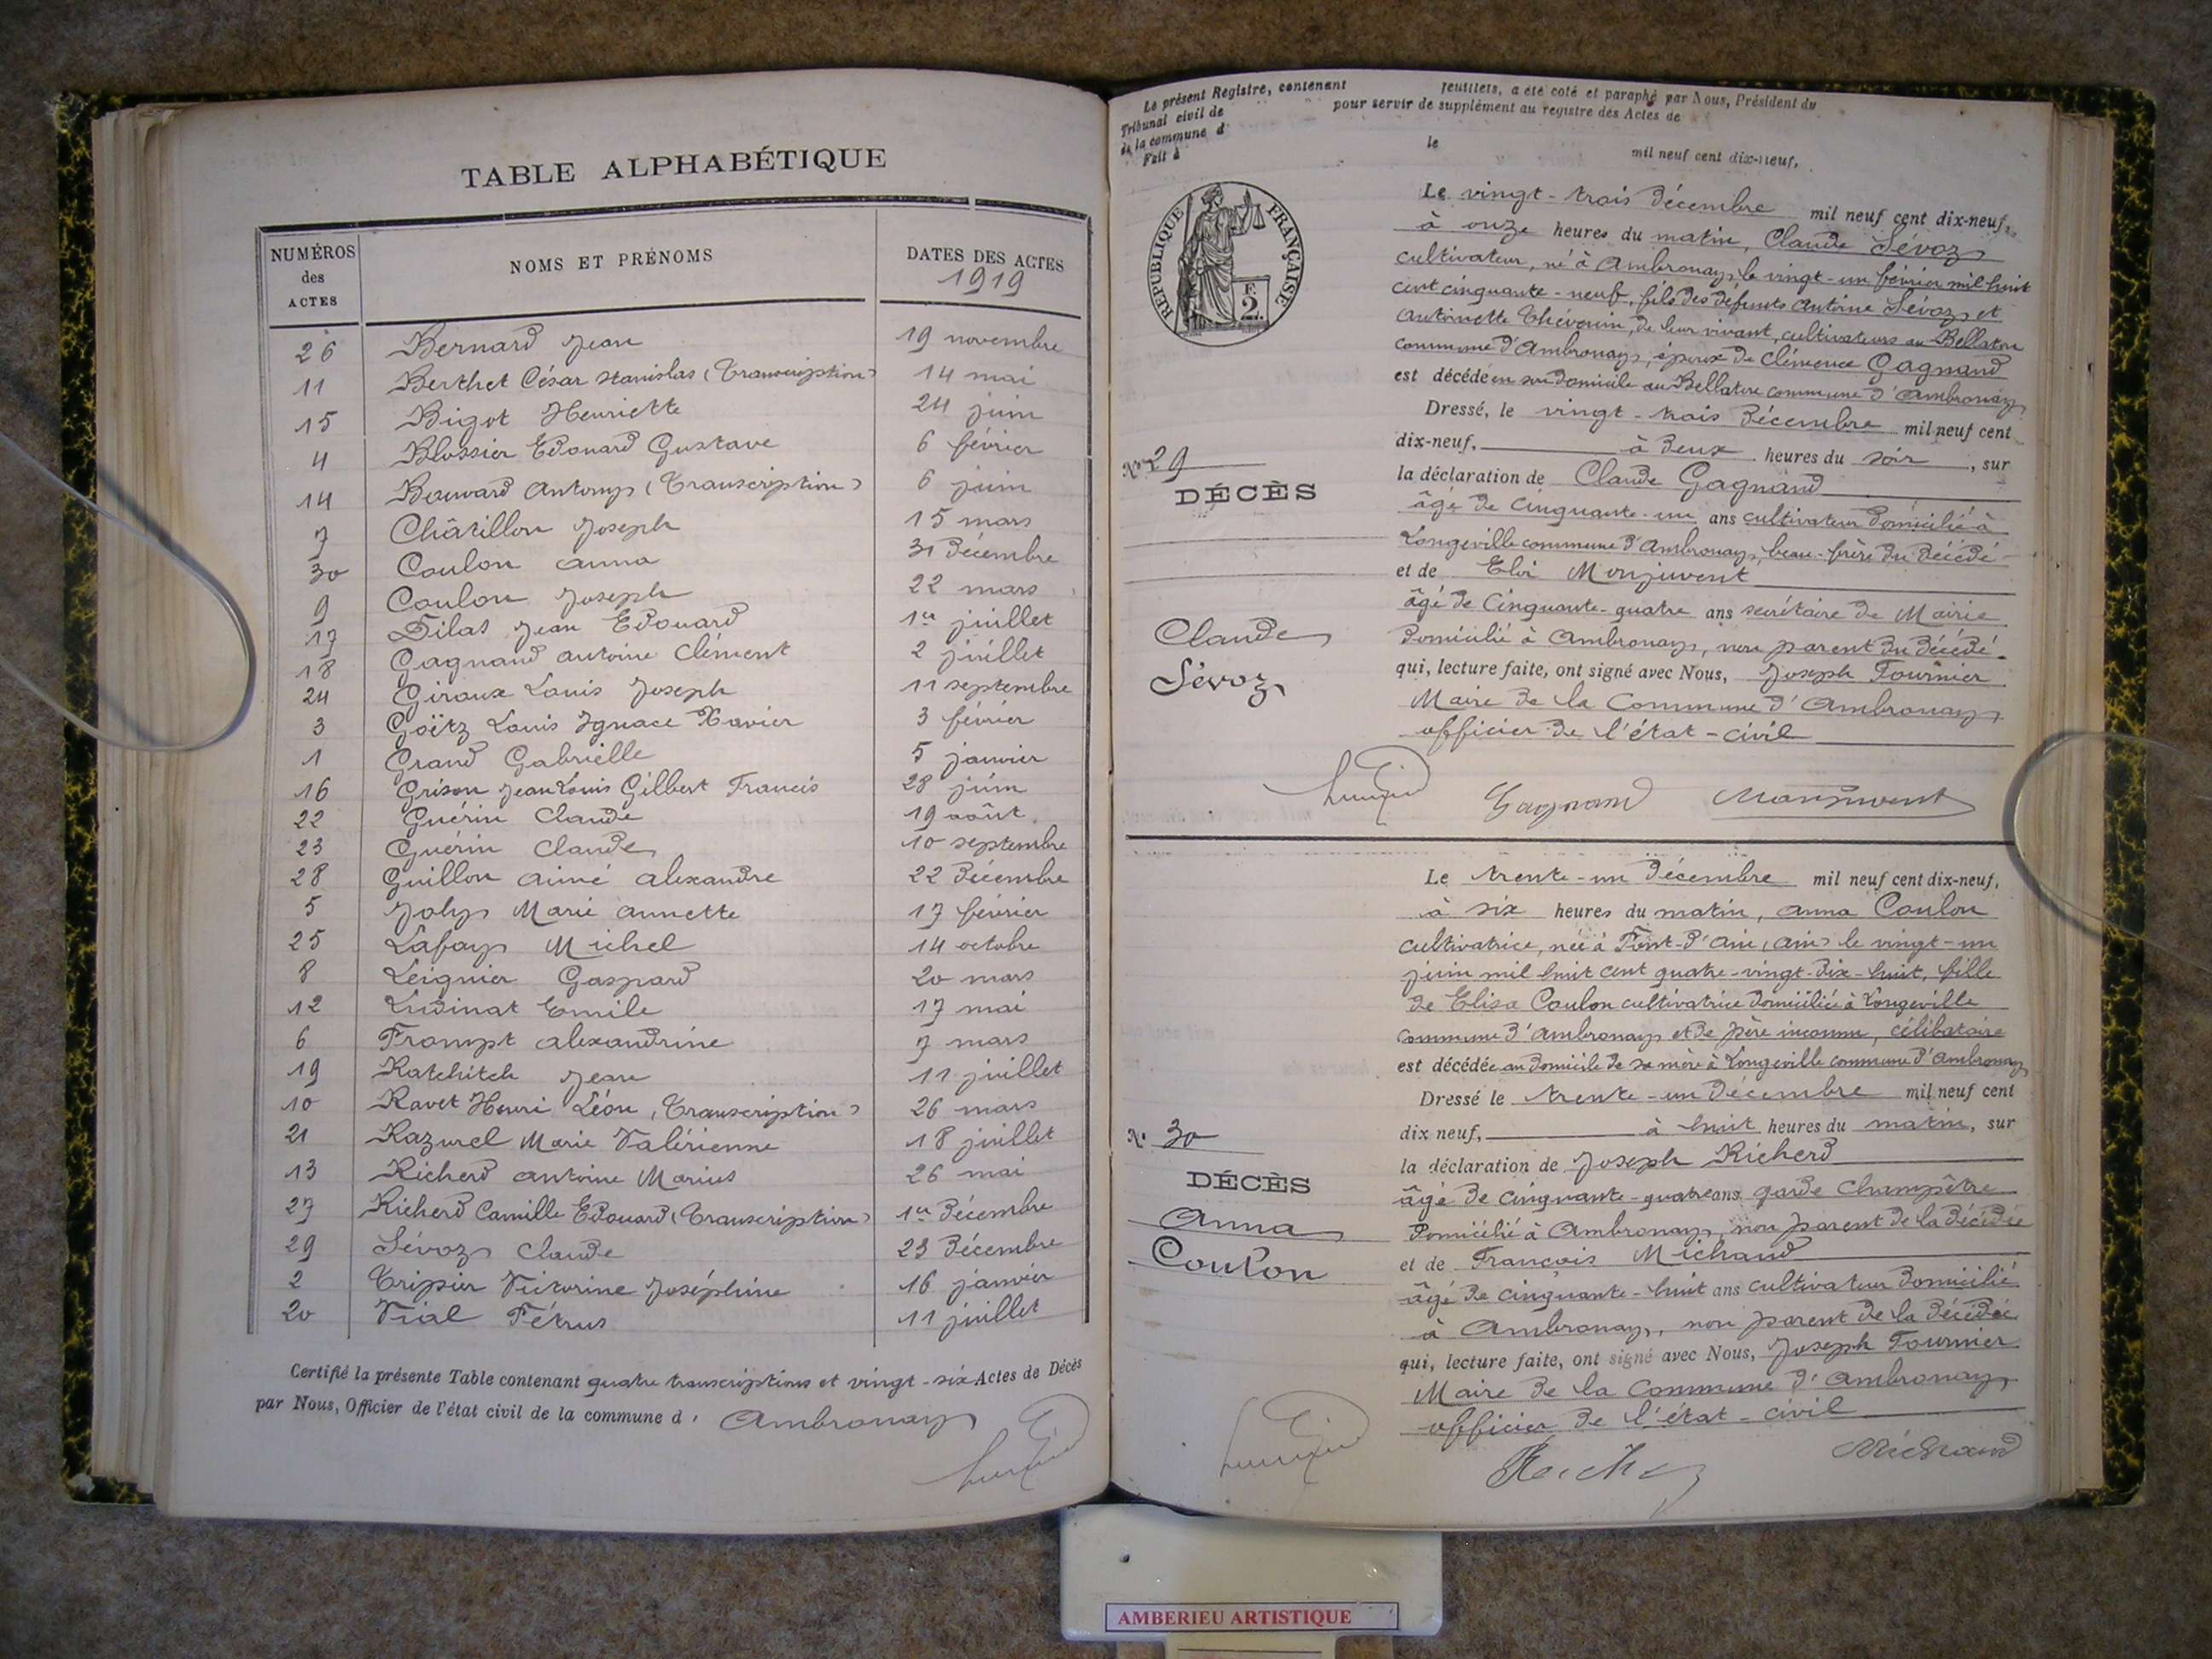 TABLE ALPHABÉTIQUE
NUMÉROS des ACTES
NOMS ET PRÉNOMS
DATES DES ACTES
1919
26 Bernard Jean 19 novembre
11 Berthet César Stanislas (Transcription) 14 mai
15 Bigot Henriette 24 juin
4 Blossier Edouard Gustave 6 février
14 Bouvard Antony (Transcription) 6 juin
7 Châtillon Joseph 15 mars
30 Coulon Anna 31 Décembre
9 Coulon Joseph 22 mars
17 Dilas Jean Edouard 1er juillet
18 Gagnand Antoine Clément 2 juillet
24 Giroux Louis Joseph 11 septembre
3 Goëtz Louis Ignace Xavier 3 février
1 Grand Gabrielle 5 janvier
16 Grison Jean Louis Gilbert Francis 28 juin
22 Guérin Claude 19 août
23 Guérin Claude 10 septembre
28 Guillon Aimé Alexandre 22 Décembre
5 Joly Marie Annette 17 février
25 Lafay Michel 14 octobre
8 Leignier Gaspard 20 mars
12 Ludinat Emile 17 mai
6 Prompt Alexandrine 7 mars
19 Ratchitch Jean 11 juillet
10 Ravet Henri Léon (Transcription) 26 mars
21 Razurel Marie Valérienne 18 juillet
13 Richerd Antoine Marius 26 mai
27 Richerd Camille Edouard (Transcription) 1er Décembre
29 Sévoz Claude 23 Décembre
2 Tripier Victorine Joséphine 16 janvier
20 Vial Pétrus 11 juillet
Certifié la présente Table contenant quatre transcriptions et vingt-six Actes de Décès
par Nous, Officier de l'état civil de la commune d'Ambronay
Le présent Registre, contenant feuillets, a été coté et paraphé par Nous, Président du
Tribunal civil de pour servir de supplément au registre des Actes de
de la commune d
Fait à le mil neuf cent dix-neuf,
RÉPUBLIQUE FRANÇAISE
F. 2.
Le vingt-trois Décembre mil neuf cent dix-neuf,
à onze heures du matin, Claude Sévoz
cultivateur, né à Ambronay le vingt-un février mil huit
cent cinquante-neuf, fils des défunts Antoine Sévoz et
Antoinette Thévenin, de leur vivant, cultivateurs au Bellaton
commune d'Ambronay, époux de Clémence Gagnand
est décédé en son domicile au Bellaton commune d'Ambronay
Dressé, le vingt-trois Décembre mil neuf cent
dix-neuf, à deux heures du soir, sur
la déclaration de Claude Gagnand
âgé de cinquante-un ans cultivateur domicilié à
Longeville commune d'Ambronay, beau-frère du décédé
et de Eloi Monjuvent
âgé de Cinquante-quatre ans secrétaire de Mairie
domicilié à Ambronay, non parent du décédé.
qui, lecture faite, ont signé avec Nous, Joseph Fournier
Maire de la Commune d'Ambronay
officier de l'état-civil
No 29
DÉCÈS
Claude
Sévoz
Gagnand Monjuvent
Le trente-un Décembre mil neuf cent dix-neuf,
à six heures du matin, Anna Coulon
cultivatrice, née à Pont-d'Ain (Ain) le vingt-un
juin mil huit cent quatre-vingt-dix-huit, fille
de Elisa Coulon cultivatrice domiciliée à Longeville
commune d'Ambronay et de père inconnu, célibataire
est décédée au domicile de sa mère à Longeville commune d'Ambronay
Dressé le trente-un Décembre mil neuf cent
dix neuf, à huit heures du matin, sur
la déclaration de Joseph Richerd
âgé de cinquante-quatre ans garde Champêtre
domicilié à Ambronay, non parent de la décédée
et de François Michaud
âgé de cinquante-huit ans cultivateur domicilié
à Ambronay, non parent de la décédée
qui, lecture faite, ont signé avec Nous, Joseph Fournier
Maire de la Commune d'Ambronay
officier de l'état-civil
No 30
DÉCÈS
Anna
Coulon
Michaud
AMBERIEU ARTISTIQUE